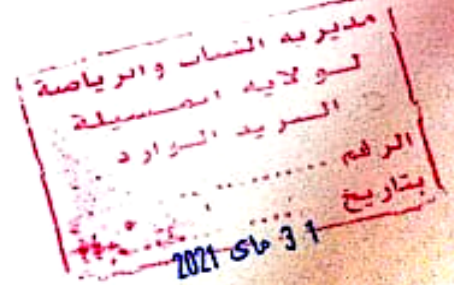 مديرية الشباب والرياضة
لولاية المسيلة
البريد الوارد
الرقم ..............
بتاريخ ..............
31 ماي 2021